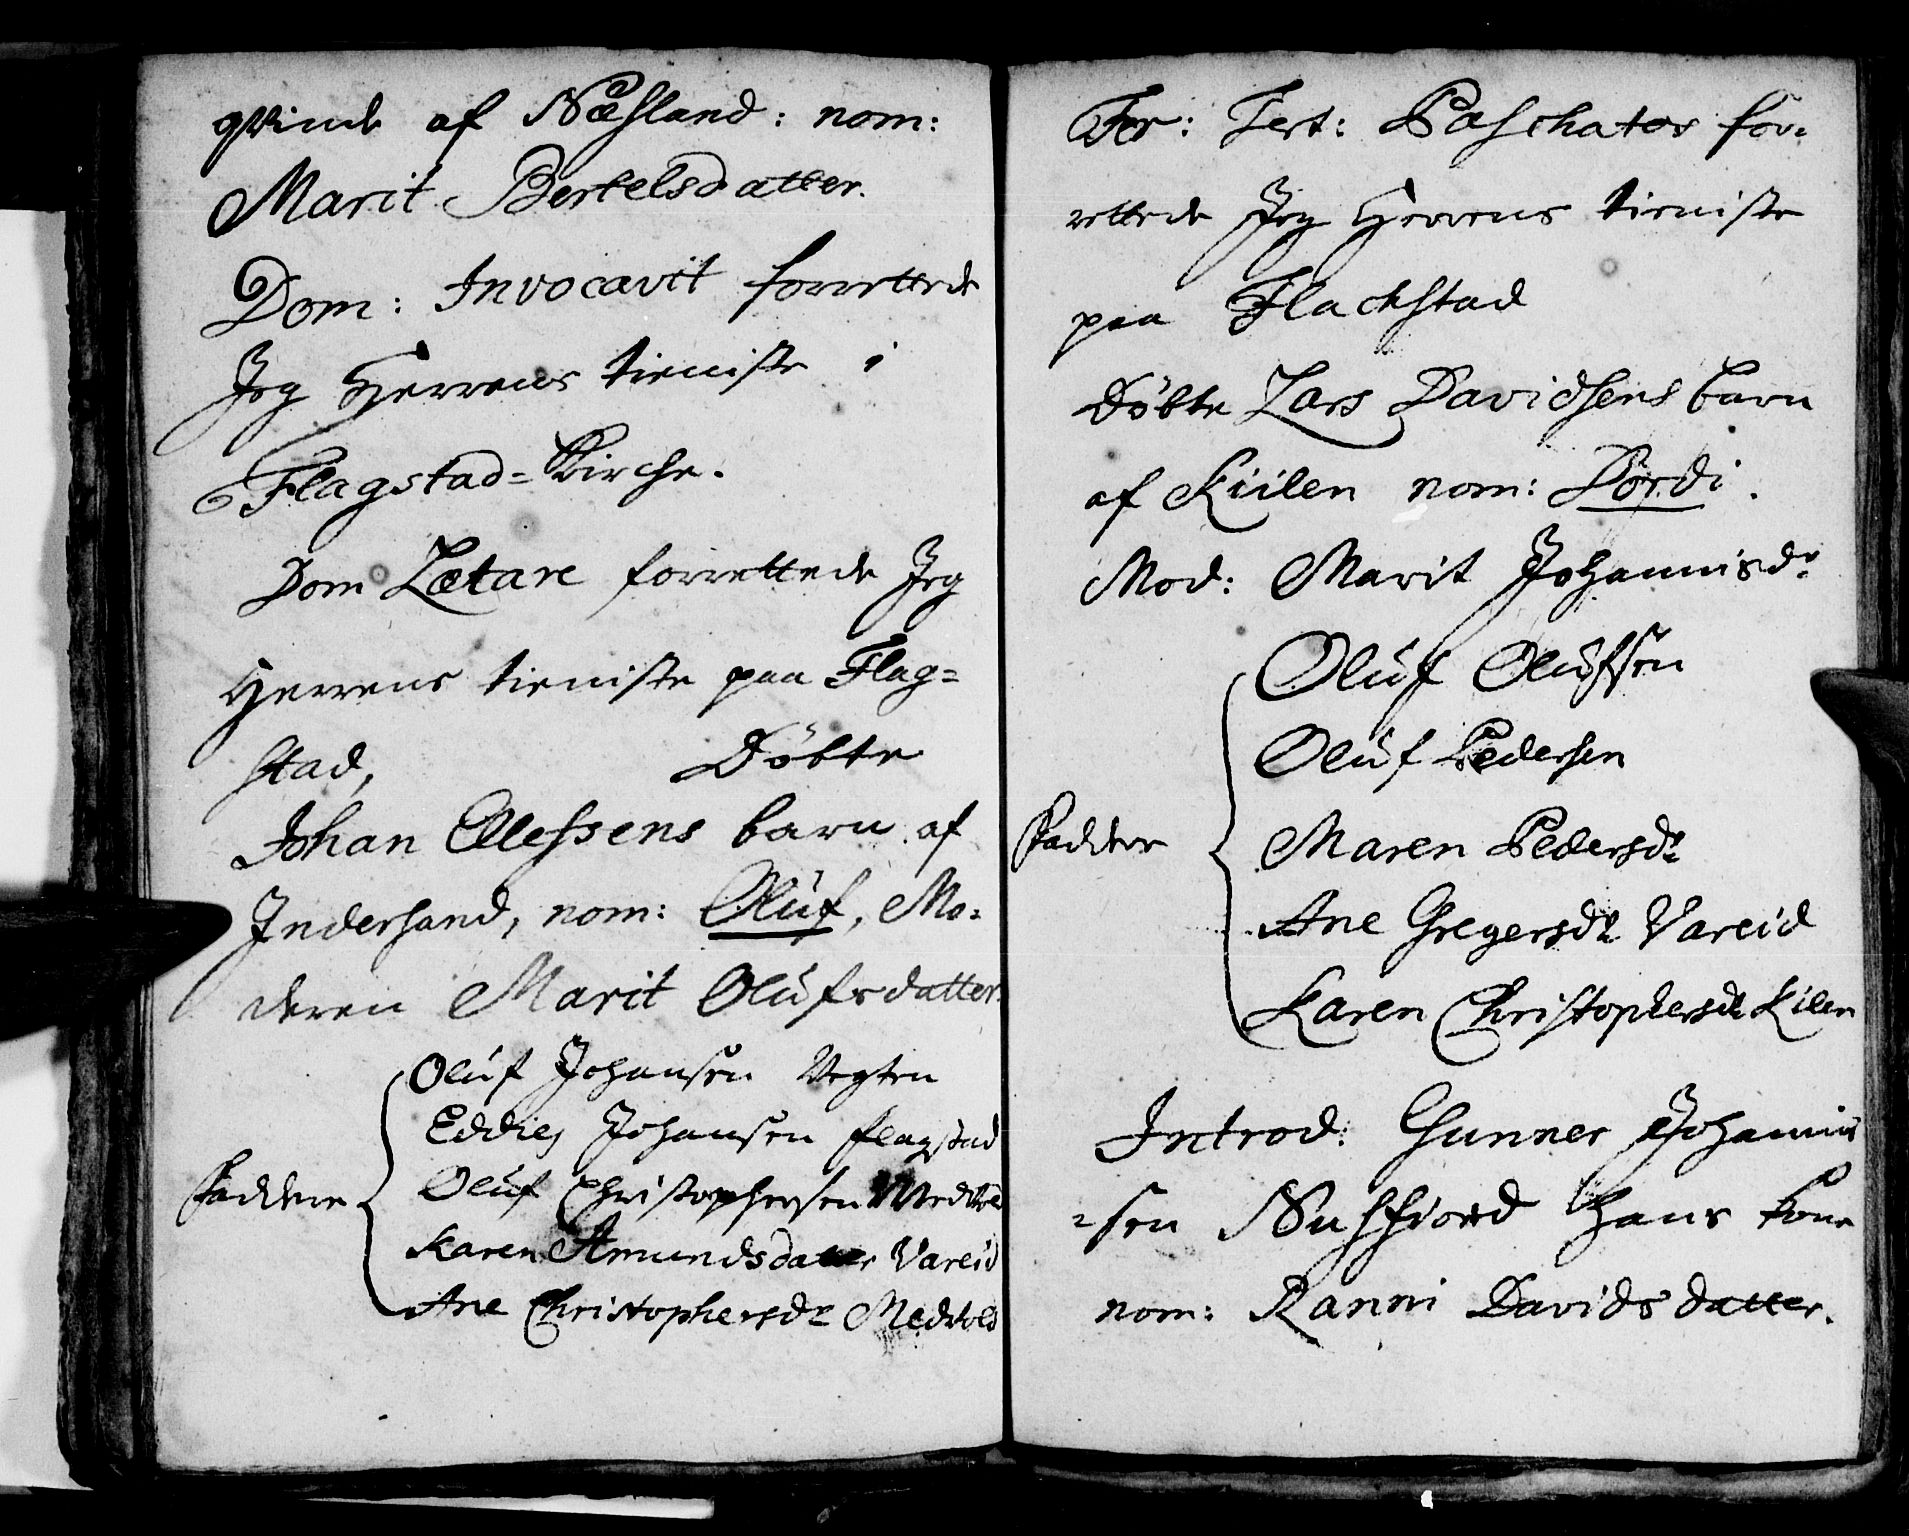 qvinde af Næsland: nom:
Marit Bertelsdatter.
Dom: Invocavit forrettede
Jeg Herrens tieniste i
Flagstad-Kirche.
Dom Lætare forrettede Jeg
Herrens tieniste paa Flag=
stad, Døbte
Johan Ellessens barn af
Indersand, nom: Oluf, Mo=
deren Marit Olufsdatter.
Oluf Johansen Vegten
Eddies Johansen flagstad
Faddere Oluf Christophersen Medvold
Karen Amundsdatter Vareid
Ane Christophersdr Medvold
Fer: Tert: Paschatos for=
rettede Jeg Herrens tieniste
paa Flackstad
Døbte Lars Davidsens barn
af Kiilen nom: Dordi.
Mod: Marit Johannisdr
Oluf Olufsen
Oluf Pedersen
Faddere Maren Pedersdr
Ane Gregersdr Vareid
Karen Christophersdr Kilen
Introd: Gunner Johannis
=sen Nusfiord hans kone
nom: Ranni Davidsdatter.